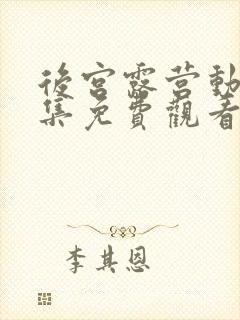 後宮露营動
集免費觀看
李其恩